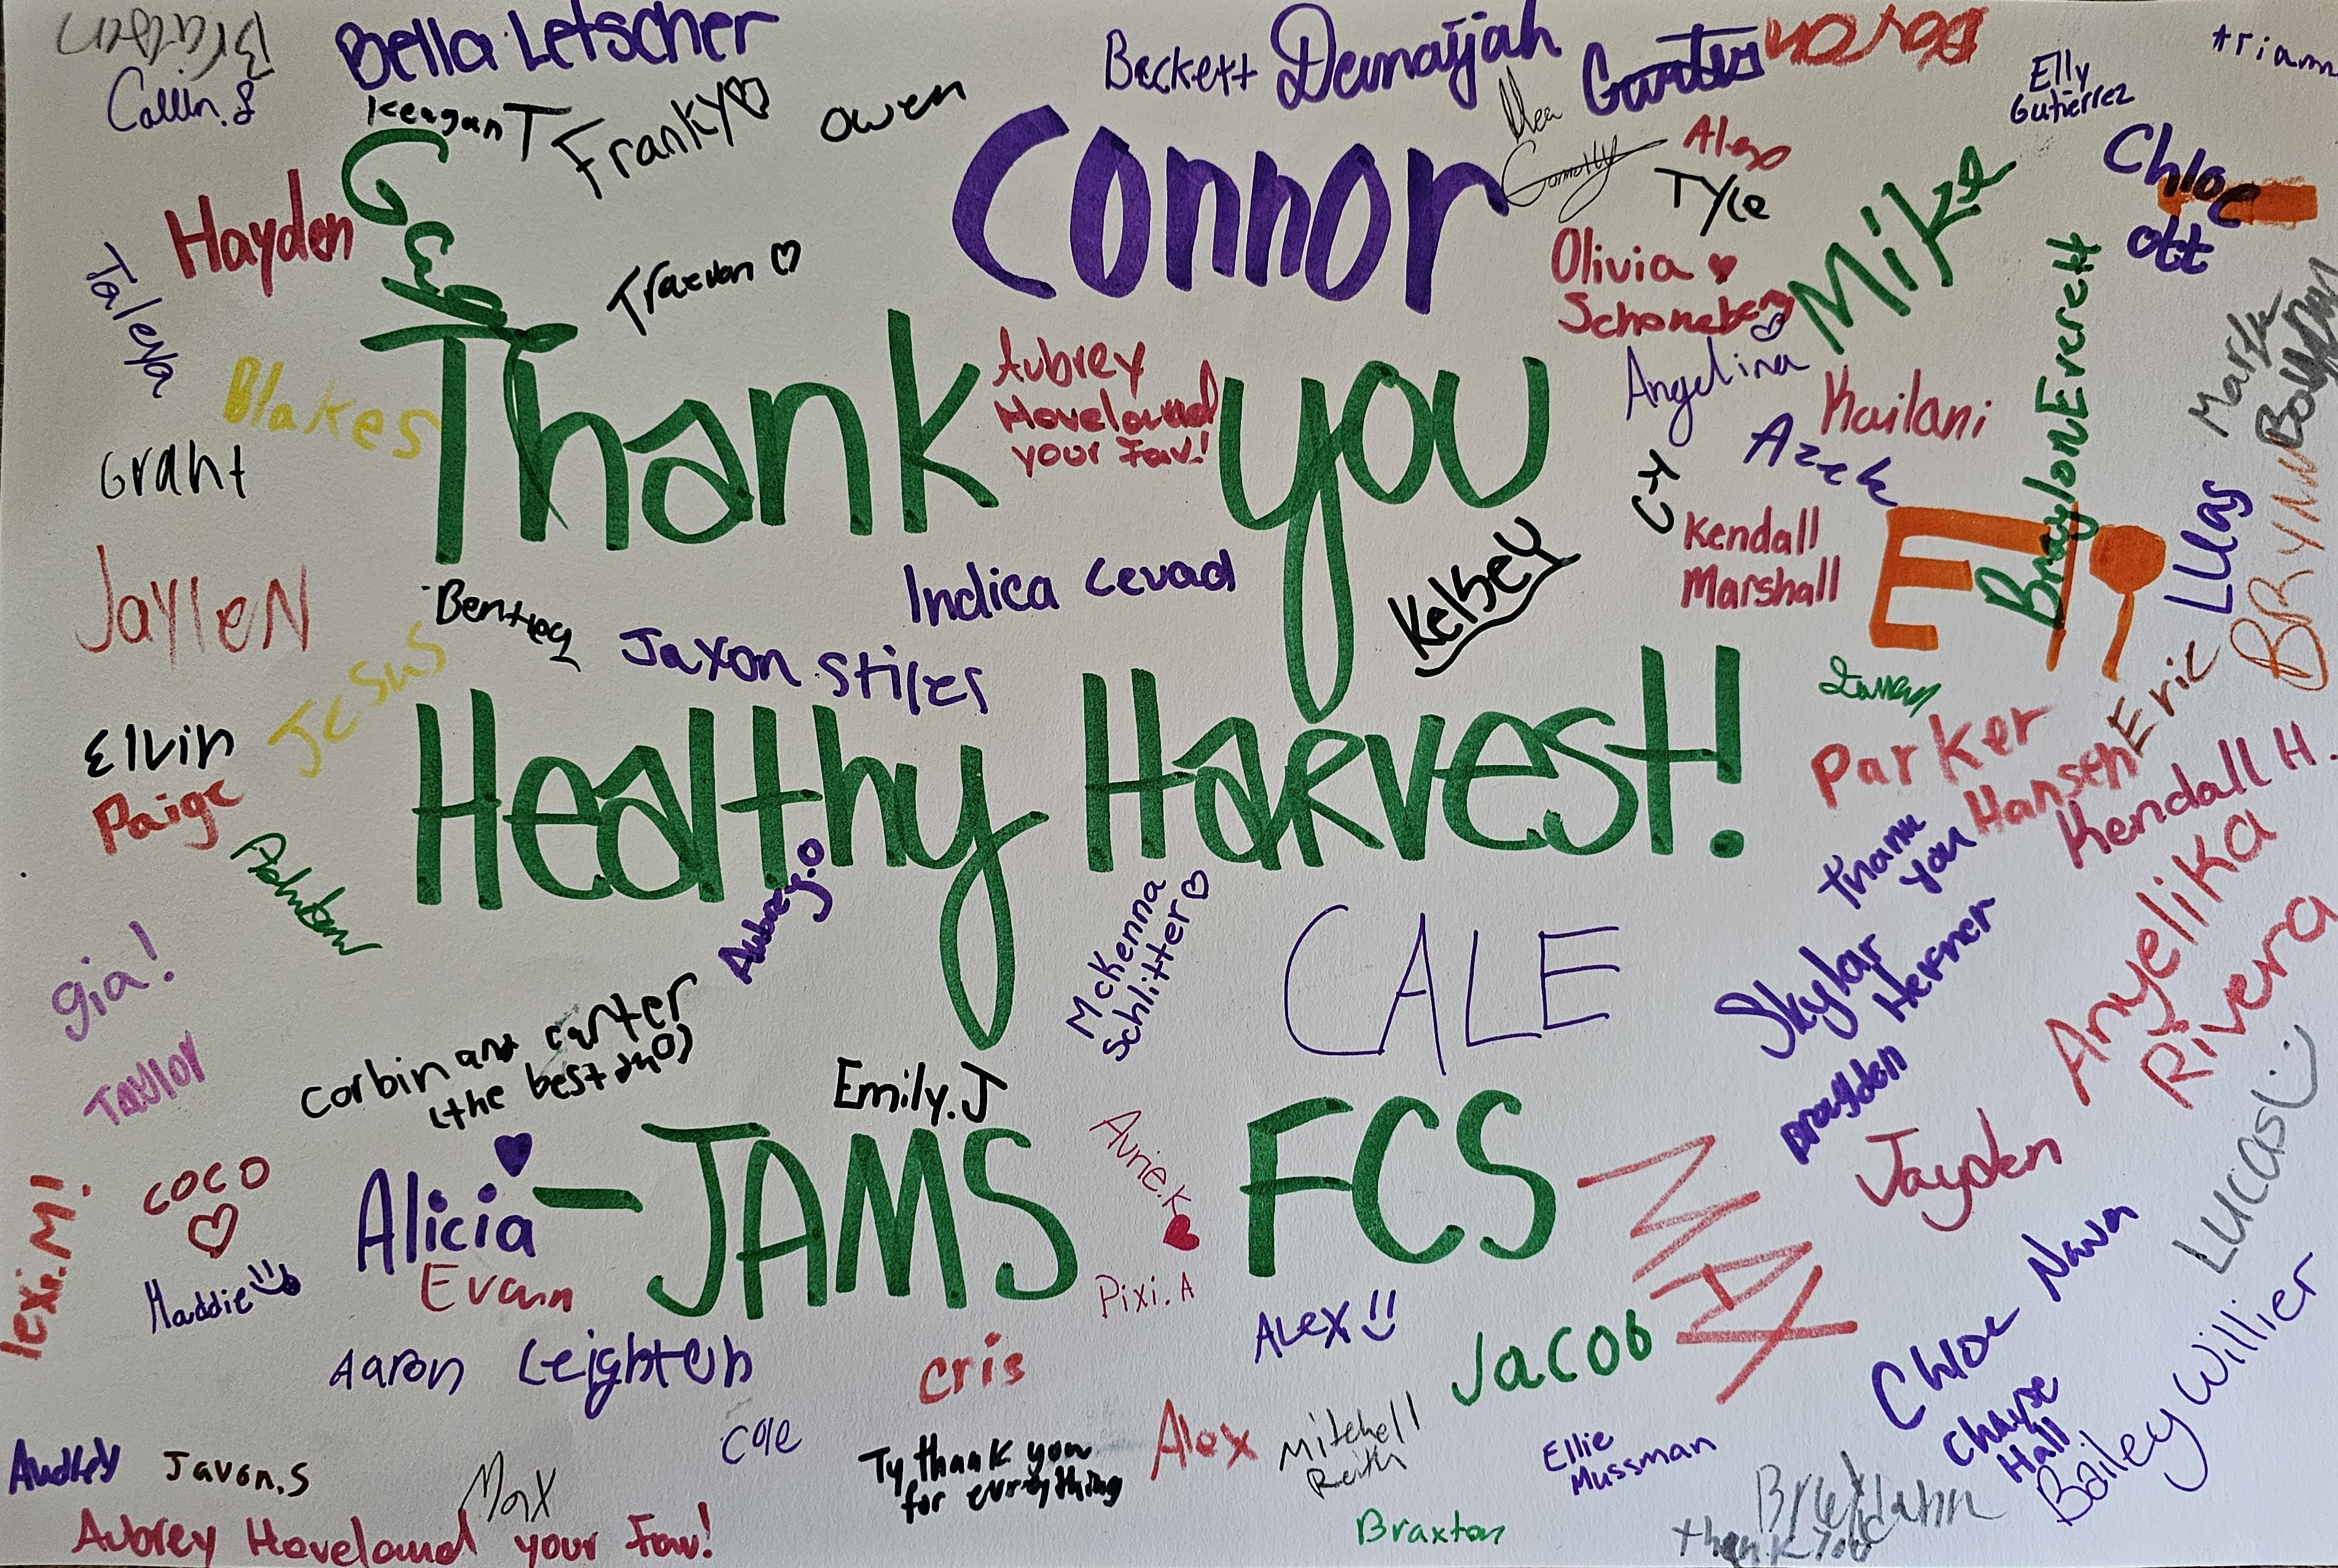 Bella Letscher
Beckett
Damaijah
Collin.S
Keagan T
Franky♡
Owen
Connor
Elly
Gutierrez
Alexo
Tyce
Mike
Chloe
Ott
Hayden
Traevon ♡
Olivia ♥
Schoneberg
Taleya
Blakes
Thank you
Aubrey
Hoveland
your Fav!
Angelina
Kailani
Mark
Braylon Everett
Azek
Grant
CK
Kendall
Marshall
Eli
BRYNN
Jaylen
Bentley
Indica Levad
Kelsey
Jaxon Stiles
Jesus
Healthy Harvest!
Elvin
Paige
Parker
Hansen
Eric
Kendall H.
Aubrey.O
McKenna
Schlitter♡
CALE
Thank
you
Skylar
Herner
Anyelika
Rivera
gia!
Taylor
Corbin and carter
(the best duo)
Emily.J
Brayden
Jayden
Lucas
COCO
♡
Alicia
-JAMS FCS
Avrie.K
♥
MAX
Lexi.M!
Maddie
Evan
Pixi.A
Alex
Jacob
Chloe Nava
Aaron
Leighton
Cris
Cole
Chayse
Hall
Bailey Willier
Audrey
Javon.S
Max
Ty thank you
for everything
Alex
Mitchell
Reith
Ellie
Mussman
Aubrey Hoveland your Fav!
Braxton
thank you